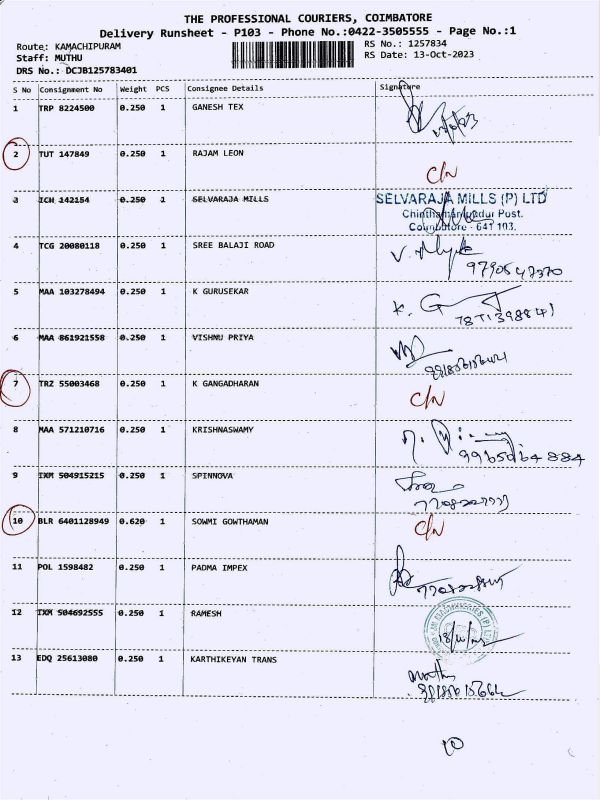 THE PROFESSIONAL COURIERS, COIMBATORE
Delivery Runsheet - P103 - Phone No.:0422-3505555 - Page No.:1
Route: KAMACHIPURAM RS No.: 1257834
Staff: MUTHU RS Date: 13-Oct-2023
DRS No.: DCJB125783401
S No Consignment No Weight PCS Consignee Details Signature
1 TRP 8224500 0.250 1 GANESH TEX
2 TUT 147849 0.250 1 RAJAM LEON
C/N
3 ICH 142154 0.250 1 SELVARAJA MILLS SELVARAJA MILLS (P) LTD
Post.
Coimbatore - 641 103.
4 TCG 20080118 0.250 1 SREE BALAJI ROAD
9790547370
5 MAA 103278494 0.250 1 K GURUSEKAR
7871398841
6 MAA 861921558 0.250 1 VISHNU PRIYA
7 TRZ 55003468 0.250 1 K GANGADHARAN
C/N
8 MAA 571210716 0.250 1 KRISHNASWAMY
9965064884
9 IXM 504915215 0.250 1 SPINNOVA
10 BLR 6401128949 0.620 1 SOWMI GOWTHAMAN C/N
11 POL 1598482 0.250 1 PADMA IMPEX
12 IXM 504692555 0.250 1 RAMESH
13 EDQ 25613080 0.250 1 KARTHIKEYAN TRANS
10